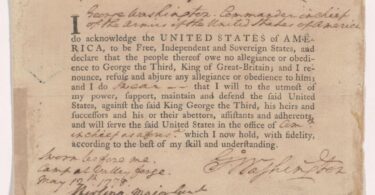 George Washington, Commander in chief
of the armies of the United States of America
I do acknowledge the UNITED STATES of AME-
RICA, to be Free, Independent and Sovereign States, and
declare that the people thereof owe no allegiance or obedi-
ence to George the Third, King of Great-Britain; and I re-
nounce, refuse and abjure any allegiance or obedience to him;
and I do swear that I will to the utmost of
my power, support, maintain and defend the said United
States, against the said King George the Third, his heirs and
successors and his or their abettors, assistants and adherents,
and will serve the said United States in the office of Com
in chief as aforesd. which I now hold, with fidelity,
according to the best of my skill and understanding.
Sworn before me,
Camp at Valley forge
May 12th 1778
GWashington
Stirling Major Genl